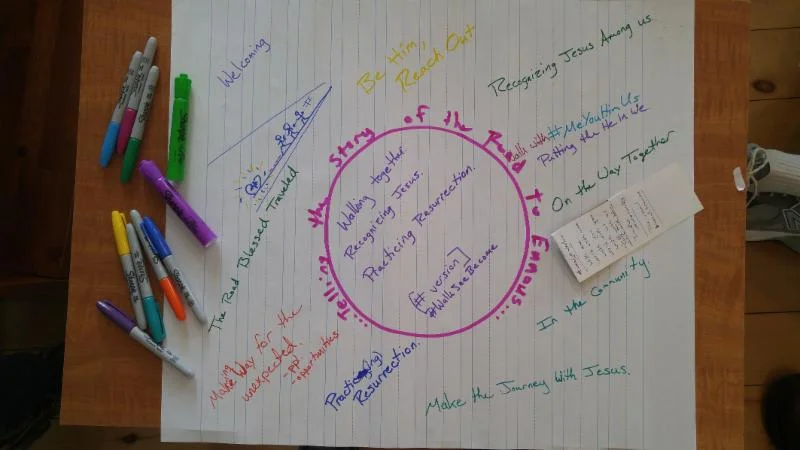 Welcoming
Be Him,
Reach Out
Recognizing Jesus Among us.
Walk with #MeYouHimUs
Putting the He in We
On the Way Together
In the Community.
Make the Journey With Jesus.
Practic(ing)
Resurrection.
Making Way for the
unexpected.
-ppl
-opportunities
The Road Blessed Traveled
...Telling the Story of the Road To Emmaus...
Walking together
Recognizing Jesus.
Practicing Resurrection.
[# version]
#WalkSeeBecome
Sharpie